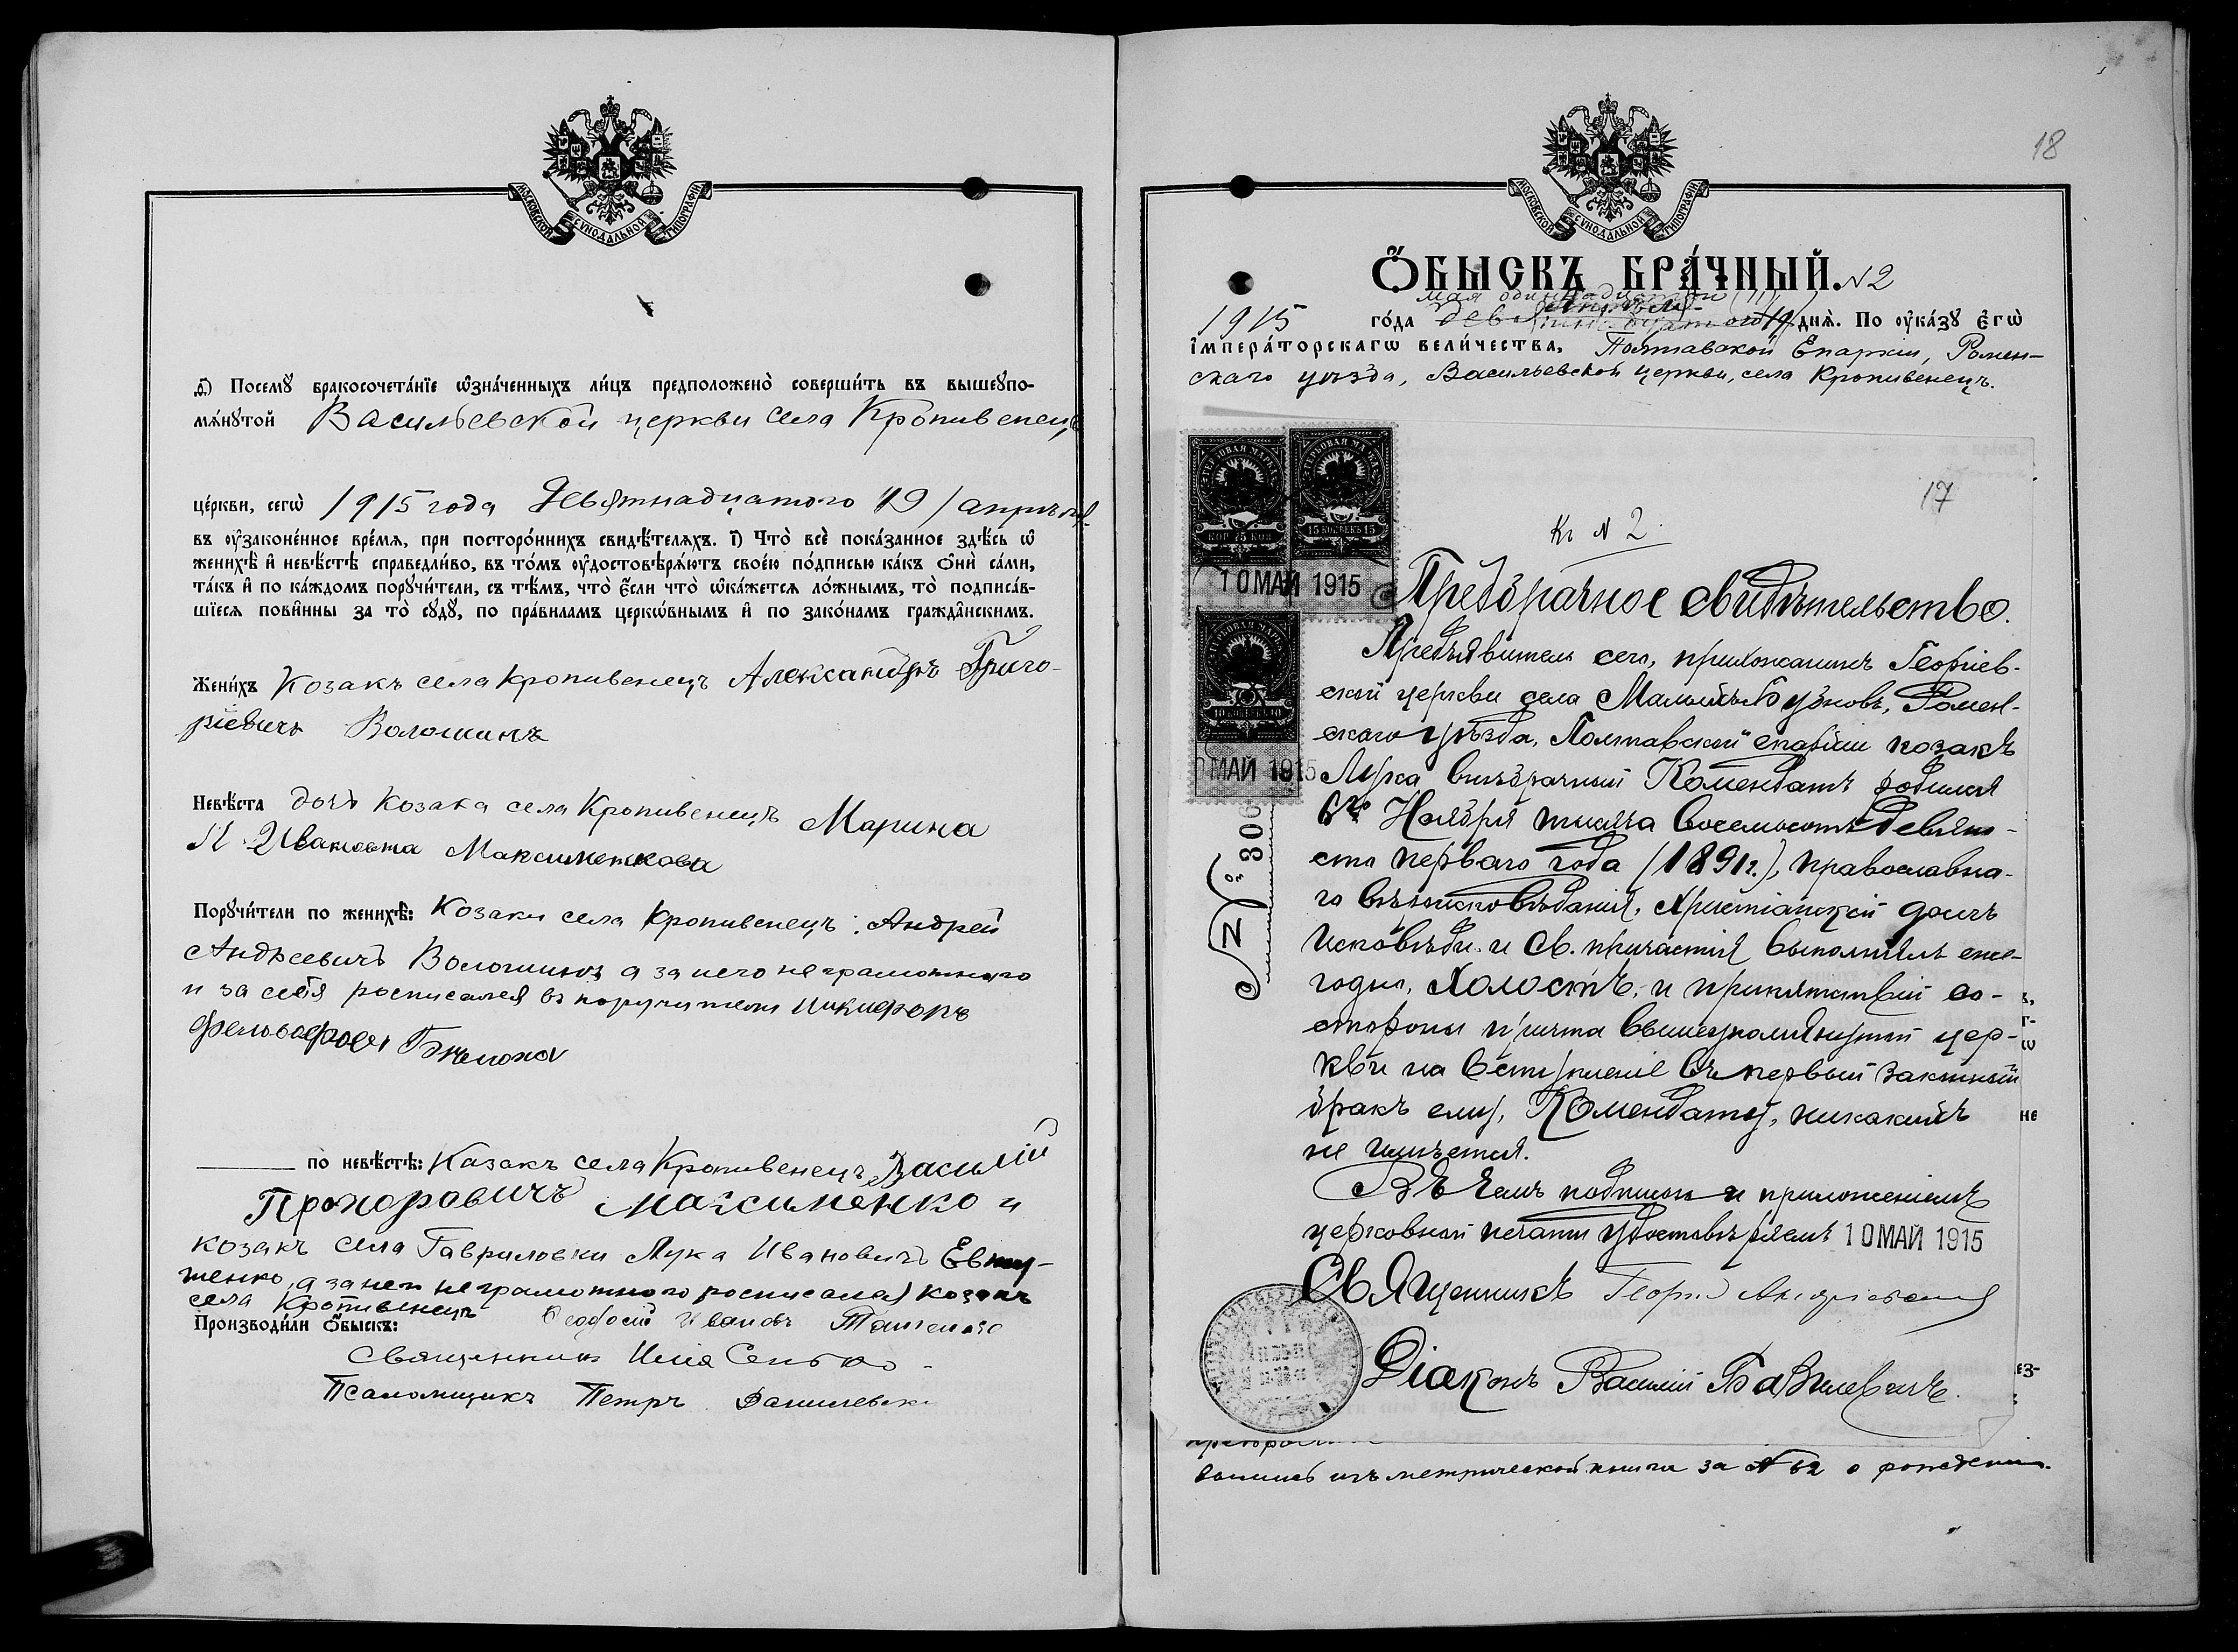 МОСКОВСКОЙ СУНОДАЛЬНОЙ ТИПОГРАФІИ
ѳ҃) Посемꙋ̀ бракосочета́нїе ѡ҆зна́ченныхъ ли́цъ предположено̀ соверши́ть въ вышеꙋпо-
мѧ́нꙋтой Васильевской церкви села Кропивенецъ
це́ркви, сегѡ̀ 1915 года Девятнадцатого 19/ апрѣля
въ ᲂу҆законе́нное вре́мѧ, при посторо́ннихъ свидѣ́телѧхъ. і҃) Что̀ всѐ пока́занное здѣ́сь ѡ҆
женихѣ̀ и҆ невѣ́стѣ справедли́во, въ то́мъ ᲂу҆достовѣрѧ́ютъ свое́ю по́дписью ка́къ ѻ҆нѝ са́ми,
та́къ и҆ по ка́ждомъ порꙋчи́тели, съ тѣ́мъ, что̀ є҆́сли что̀ ѡ҆ка́жетсѧ ло́жнымъ, то̀ подписа́в-
шїесѧ пови́нны за то̀ сꙋдꙋ̀, по пра́виламъ церкѡ́внымъ и҆ по зако́намъ гражда́нскимъ.
Жени́хъ Козакъ села Кропивенецъ Александръ Григо-
ріевичъ Волошинъ
Невѣ́ста дочь козака села Кропивенецъ Марина
Ивановна Максименкова
Порꙋчи́тели по женихѣ̀: Козаки села Кропивенецъ: Андрей
Андреевичъ Волошинъ а за него неграмотного
и за себя росписался въ поручители Никифоръ
по невѣ́стѣ: Казакъ села Кропивенецъ Василій
Прохоровичъ Максименко и
козакъ села Гавриловки Лука Ивановичъ Евту-
шенко, а за него неграмотного росписался козакъ
села Кропивенецъ Ѳеодосій Ивановъ
Производи́ли ѻ҆́быскъ:
Священникъ Илія Сенько
Псаломщикъ Петръ Данилевскі
18
МОСКОВСКОЙ СУНОДАЛЬНОЙ ТИПОГРАФІИ
Ѻ҆́БЫСКЪ БРА́ЧНЫЙ. N2
мая одиннадцатого (11)
1915 го́да днѧ̀. По ᲂу҆ка́зꙋ Є҆гѡ̀
І҆мпера́торскагѡ вели́чества, Полтавской Епархіи, Ромен-
скаго уѣзда, Васильевской церкви, села Кропивенецъ.
ГЕРБОВАЯ МАРКА
ГЕРБОВАЯ МАРКА
КОП 75 КОП
15 КОПѢЕКЪ 15
10 МАЙ 1915
ГЕРБОВАЯ МАРКА
10 КОПѢЕКЪ 10
МАЙ 1915
№ 306
17
Къ N 2.
Предбрачное свидѣтельство.
Предъявитель сего, прихожанинъ Георгіев-
ской церкви села Малыхъ Бубновъ, Ромен-
скаго уѣзда, Полтавской епархіи козакъ
Лука внѣбрачный Комендатъ родился
6го Ноября тысяча восемьсотъ девяно-
сто перваго года (1891г.), православна-
го вѣроисповѣданія, христіанскій долгъ
исповѣди и Св. причастія выполнялъ еже-
годно, холостъ, и препятствій со-
стороны причта вышеупомянутой цер-
кви на вступленіе въ первый законный
бракъ ему, Комендату, никакихъ
не имѣется.
Въ чемъ подписомъ и приложеніемъ
церковной печати удостовѣряемъ 10 МАЙ 1915
Священникъ Георгій
Діаконъ Василій Базилевичъ.
ъ,
г-
ѡ
не
ез-
выпись изъ метрической книги за № 62 о рожденіи.